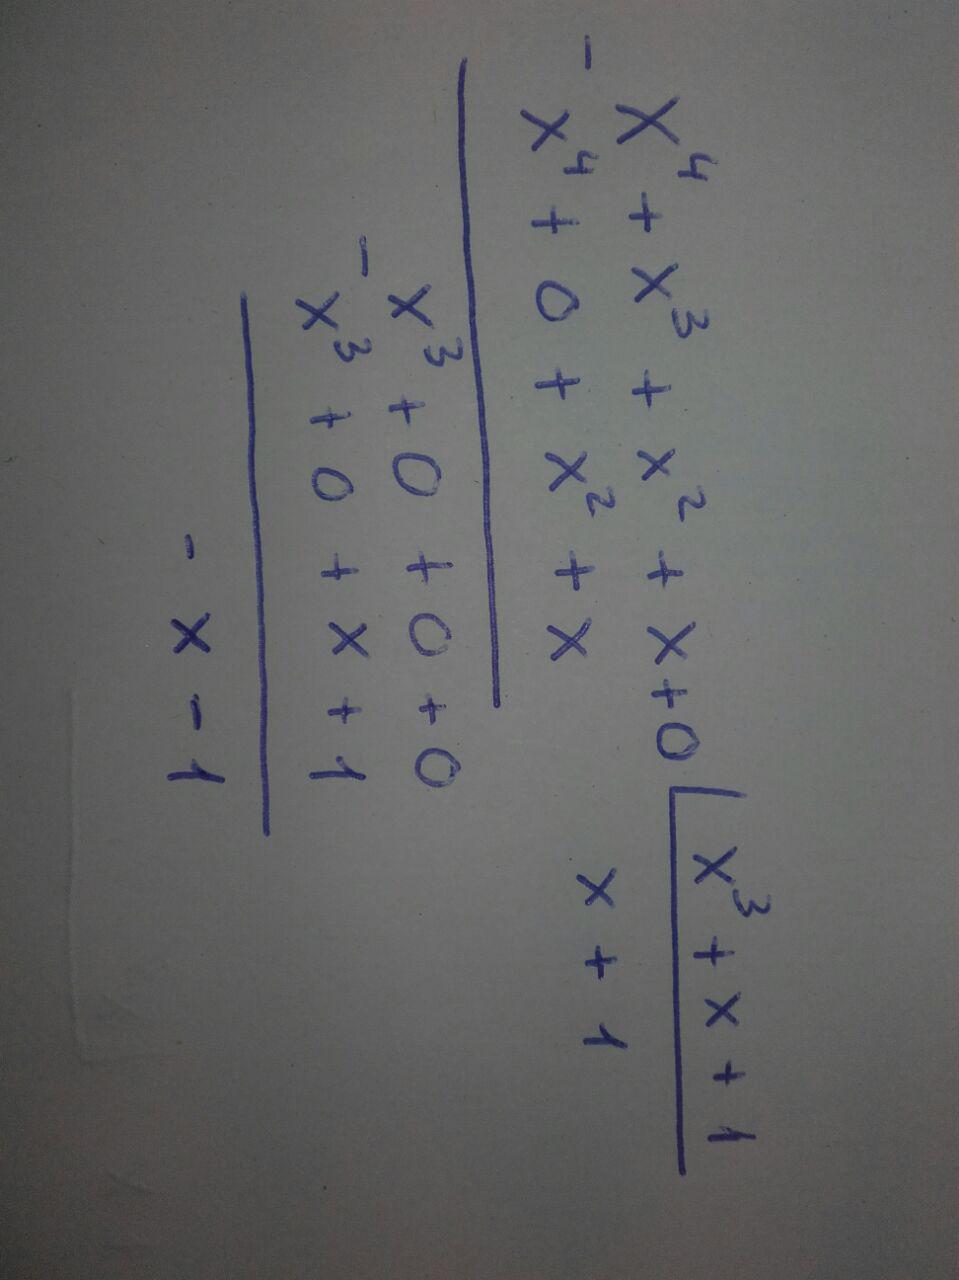 x⁴ + x³ + x² + x + 0 | x³ + x + 1
-
x⁴ + 0 + x² + x x + 1
x³ + 0 + 0 + 0
-
x³ + 0 + x + 1
- x - 1